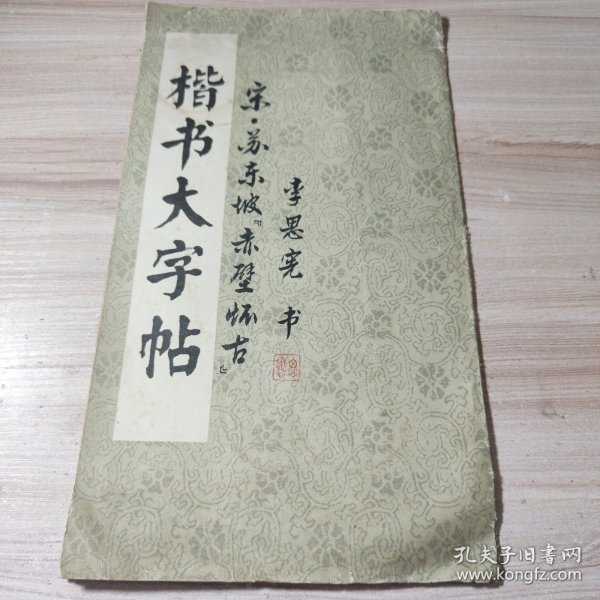 楷书大字帖
宋·苏东坡『赤壁怀古』
李思宪 书
孔夫子旧书网
www.kongfz.com